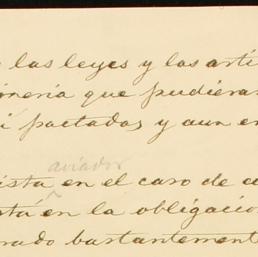 las leyes y las arti
ineria que pudiera
i pactadas y aun en
aviador
ista en el caso de a
está en la obligacio
rado bastantement